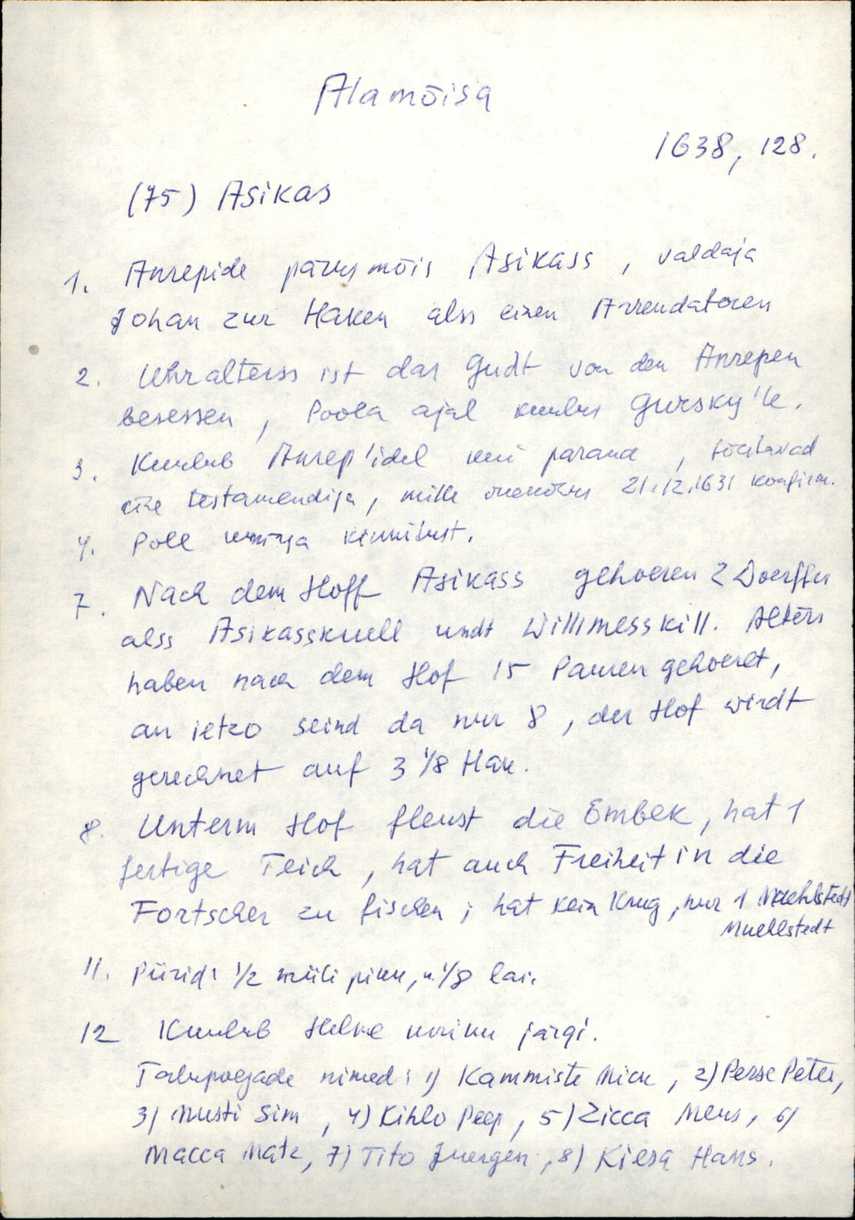 Alamõisa
1638, 128.
(75) Asikas
1. Anrepide pärusmõis Asikass, valdaja
Johan zur Haken alss einen Arrendatoren
2. Uhralterss ist das Gudt von den Anrepen
besessen, Poola ajal kuulus Gursky'le.
3. Kuulub Anrep'idel kui parand,
testamendiga, mille 21.12.1631 konfirm.
4. Pole kinnitust.
7. Nach dem Hoff Asikass gehoeren 2 Doerffer
alss Asikasskuell undt Willimesskill. Alters
haben nach dem Hof 15 Pauren gehoeret,
an ietzo seind da nur 8, der Hof wirdt
gerechnet auf 3 1/8 Hak.
8. Unterm Hof fleust die Embek, hat 1
fertige Teich, hat auch Freiheit in die
Fortscher zu fischen; hat kein Krug, nur 1 Maehlstedt
Muehlstedt
11. Piirid: 1/2 miili pikk, 1/8 lai.
12 Kuulub Helme järgi.
Talupoegade nimed: 1) Kammiste Mick, 2) Perse Peter,
3) Musti Sim, 4) Kihlo Peep, 5) Zicca Mens, 6)
Macca Matz, 7) Tito Juergen, 8) Kiesa Hans.